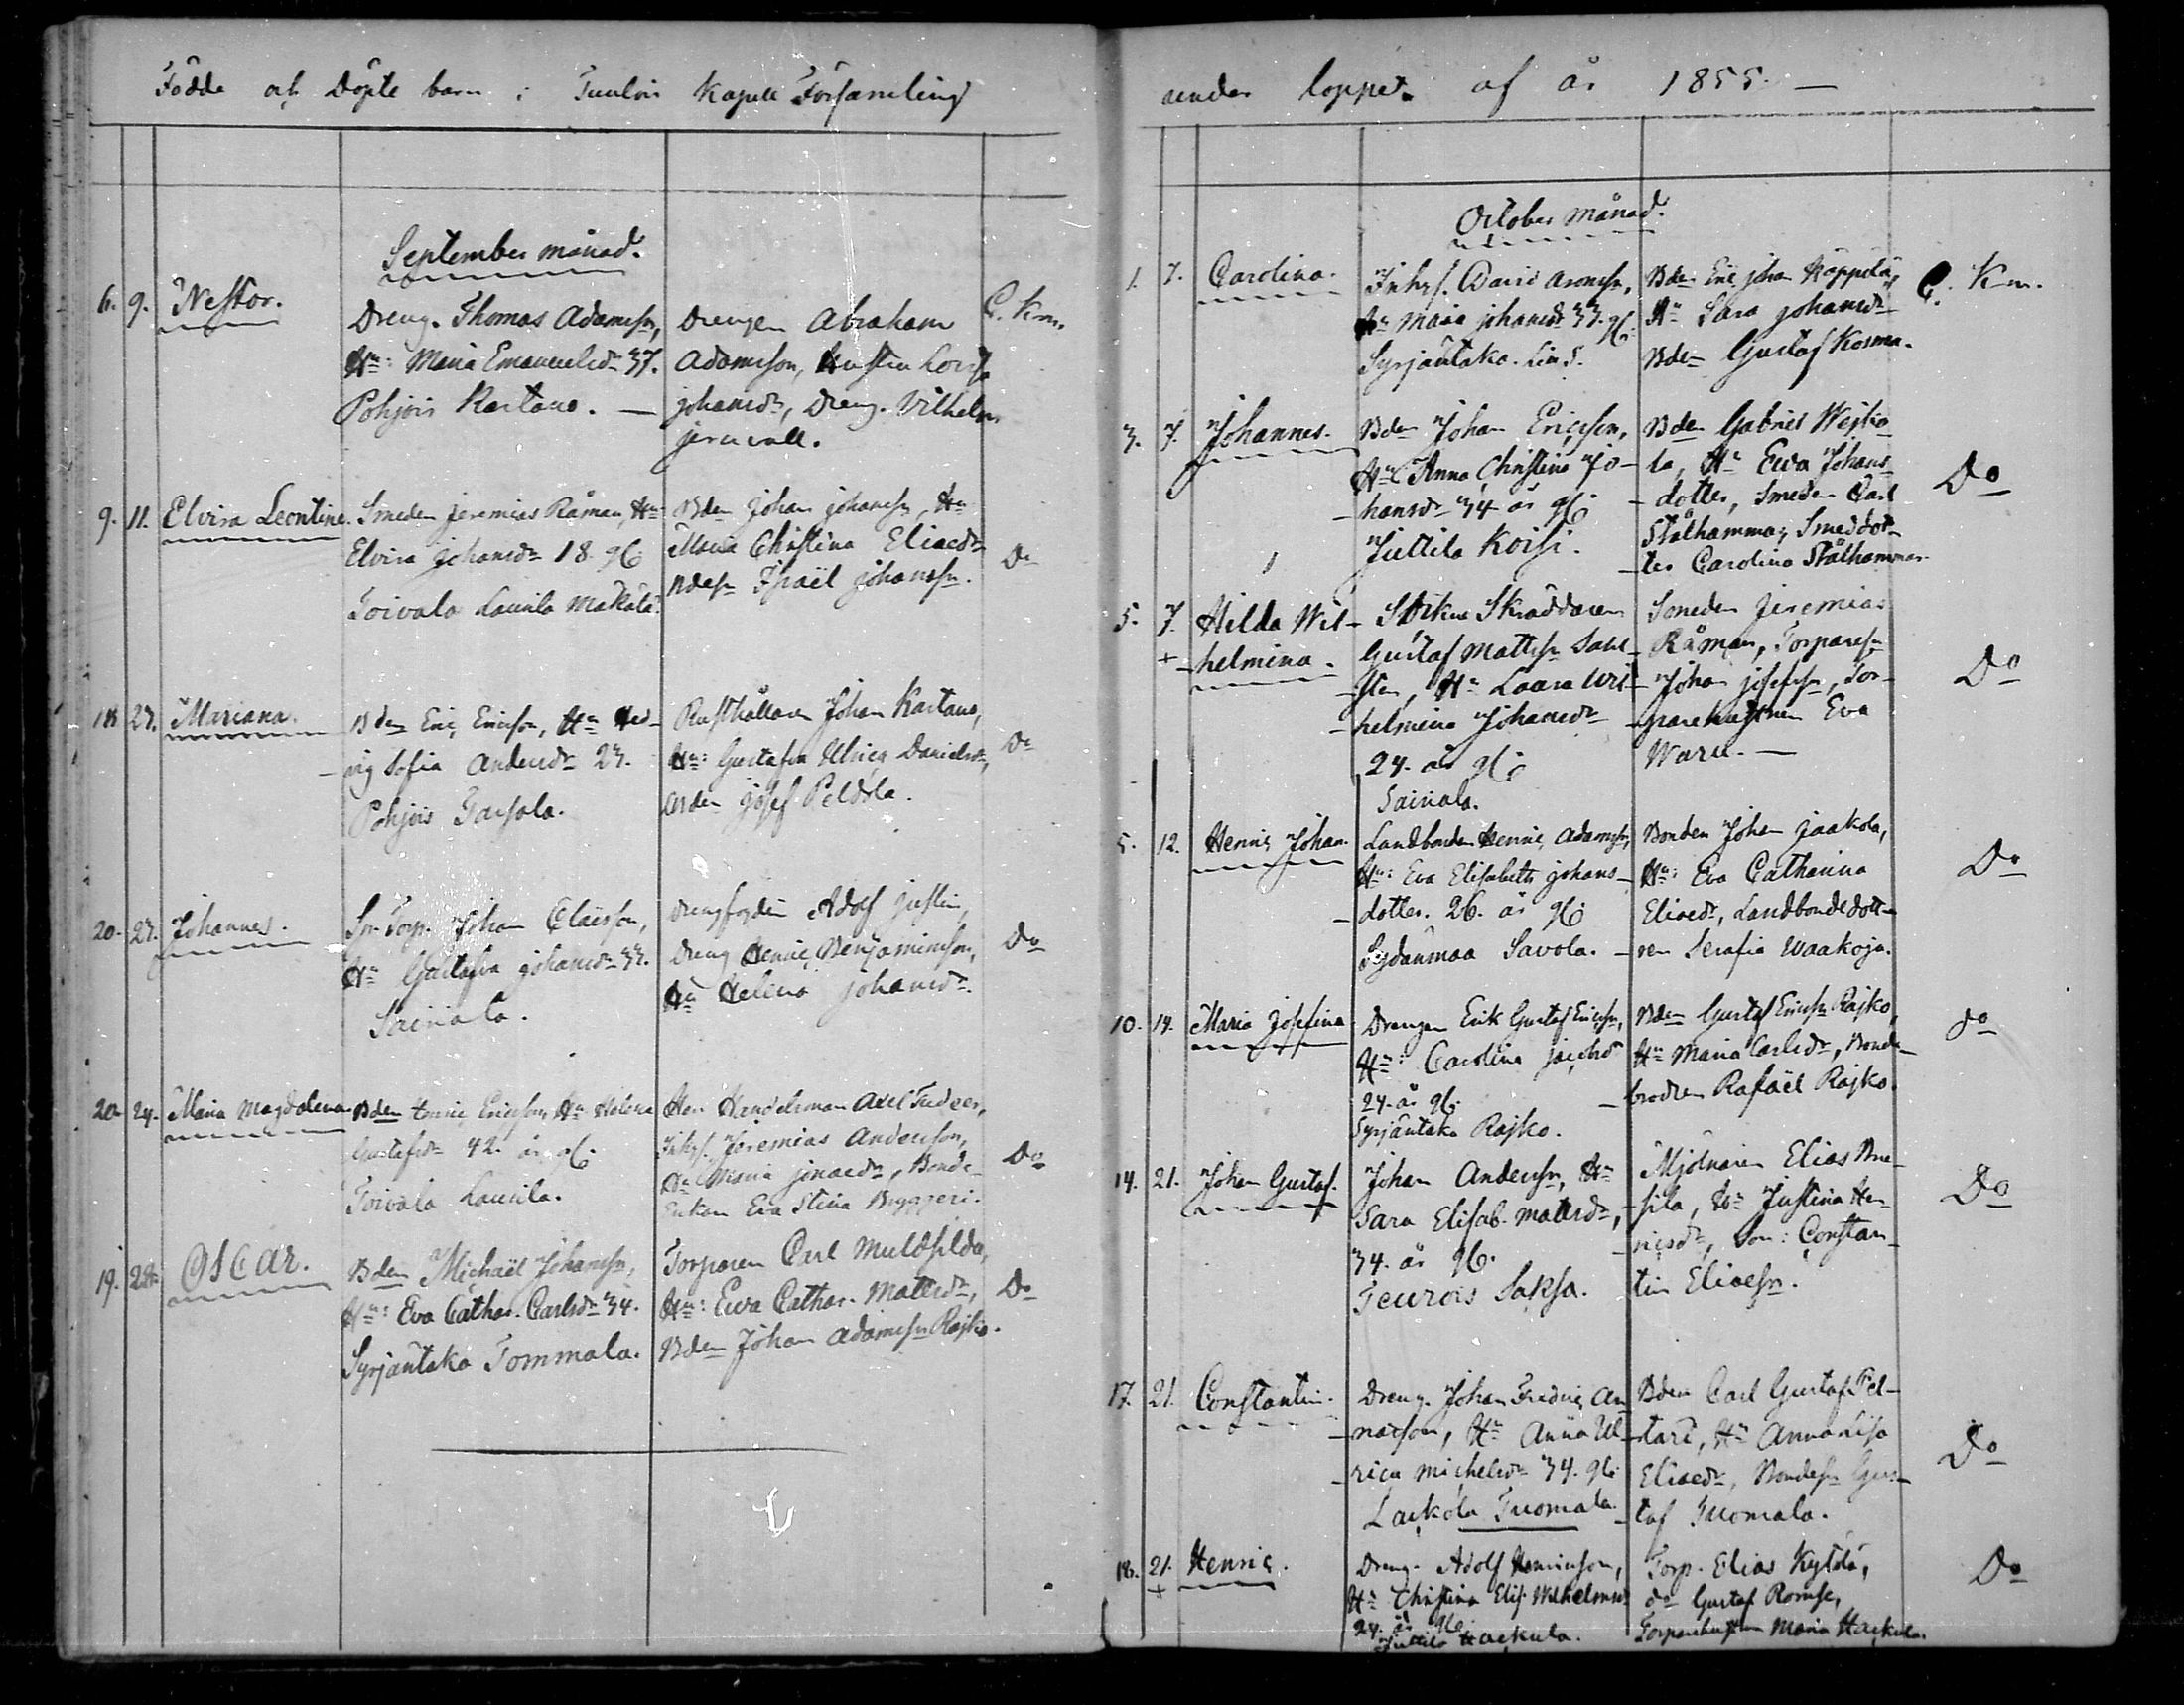 Födde och Döpte barn i Tuulois Kapell Församling
September månad.
6. 9. Nestor.
Dreng. Thomas Adamsson,
Hu: Maria Emanuelsdr 37.
Pohjois Kartano. —
Drengen Abraham
Adamsson, Hustru Lovisa
johansdr, Dreng. Vilhelm
C. Km.
9. 11. Elvira Leontine.
Smeden jeremias Råman, Hu
Elvira johansdr 18. gl.
Toivala Laurila Mäkälä.
Bden johan johansson, Hu
Maria Christina Eliaedr
Bdesn Israël johansson.
Do
18 23. Mariana.
Bden Eric Ericsson, Hu Hed-
vig Sofia Andersdr 23.
Pohjois
Rusthållaren Johan Kartano,
Hu: Gustafva Ulrica Danielsdr,
Bden josef Peldola.
Do
20. 23. Johannes.
Sn Torp. Johan Claesson,
Hu Gustafva johansdr 33.
Sairiala.
Drengfogden Adolf justin,
Dreng Henric Benjaminsson,
Hu Helena johansdr.
Do
20. 24. Maria Magdalena
Bden Henric Ericsson, Hu Helena
Gustafsdr 42. år gl.
Toivala Laurila.
Herr Handelsman Axel Tudeer,
Inhys. Jeremias Andersson,
Hu Maria jonaedr, Bonde-
Enkan Eva Stina Bryggeri.
Do
19. 28. Oscar.
Bden Michaël Johansson,
Hu: Eva Cathar. Carlsdr 34.
Syrjäntaka Tommola.
Torparen Carl Muldsilda,
Hu: Ewa Cathar. Mattsdr,
Bden Johan Adamsson Rajko.
Do
under loppet af år 1855. —
October månad.
1. 7. Carolina.
Inhys. David Aronsson,
Hu Maria johansdr 33. gl.
Syrjäntaka.
Bden Eric johan Käppälä,
Hu Sara johansdr
Bden Gustaf Kosma.
C. Km.
3. 7. Johannes.
Bden Johan Ericsson,
Hu Anna Christina Jo-
hansdr 34 år gl.
Juttila Koisi.
Bden Gabriel Wejko-
la, Hu Ewa Johans-
dotter, Smeden Carl
Stålhammar, Smeddot-
ter Carolina Stålhammar
Do
5. 7. Hilda Wil-
+ helmina.
Skräddaren
Gustaf Mattsson Sahl-
sten, Hu Laara Wil-
helmina Johansdr
24. år gl.
Sairiala.
Smeden Jeremias
Råman, Torparesn
Johan josefsson, Tor-
parehustrun Eva
Waru. —
Do
5. 12. Henric Johan.
Landbonden Henric Adamsson,
Hu: Eva Elisabeth johans-
dotter. 26. år gl.
Sydänmaa Savola.
Bonden Johan jaakola,
Hu: Eva Catharina
Eliaedr, Landbondedott-
ren Serafia Waakoja.
Do
10. 14. Maria Josefina
Drengen Erik Gustaf Ericsson,
Hu: Carolina jacobsdr
24. år gl.
Syrjäntaka Rajko.
Bden Gustaf Ericsson Rajko,
Hu Maria Carlsdr, Bonde-
brodren Rafaël Rajko.
do
14. 21. Johan Gustaf.
Johan Andersson, Hu
Sara Elisab. Mattsdr,
34. år gl.
Teurois Saksa.
Mjölnaren Elias
Hu Justina Hen-
ricsdr, Son: Constan-
tin Eliaesson.
Do
17. 21. Constantin.
Dreng. Johan Fredric An-
naesson, Hu Anna Ul-
rica Michelsdr 34. gl.
Laikola Tuomala.
Bden Carl Gustaf Pel-
tari, Hu Anna Lisa
Eliaedr, Bondesn Gus-
taf Tuomala.
Do
18. 21. Henric.
+
Dreng. Adolf Henricsson,
Hu Christina Elis. Wilhelmsdr
24. år gl.
Juttila Hackula.
Torp. Elias Kytölä,
do Gustaf
Torparehustrun Maria Hackula.
Do